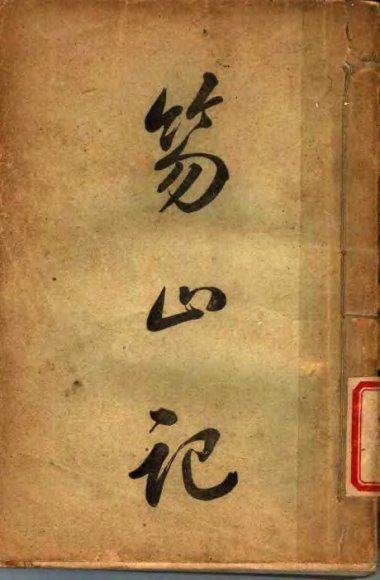 笏山記